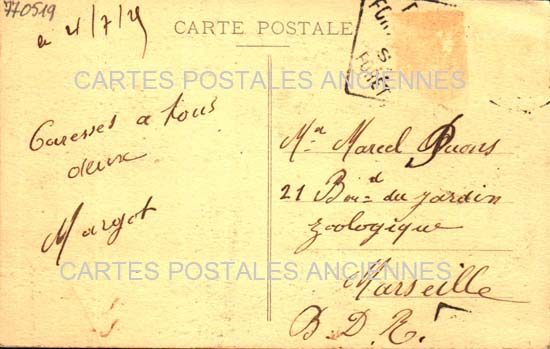 770519
CARTE POSTALE
a 21/7/29
CARTES POSTALES ANCIENNES
Caresses a tous
deux
Margot
Mr Marcel
21 Bould du jardin
zoologique
CARTES POSTALES ANCIENNES
Marseille
B. D. R.